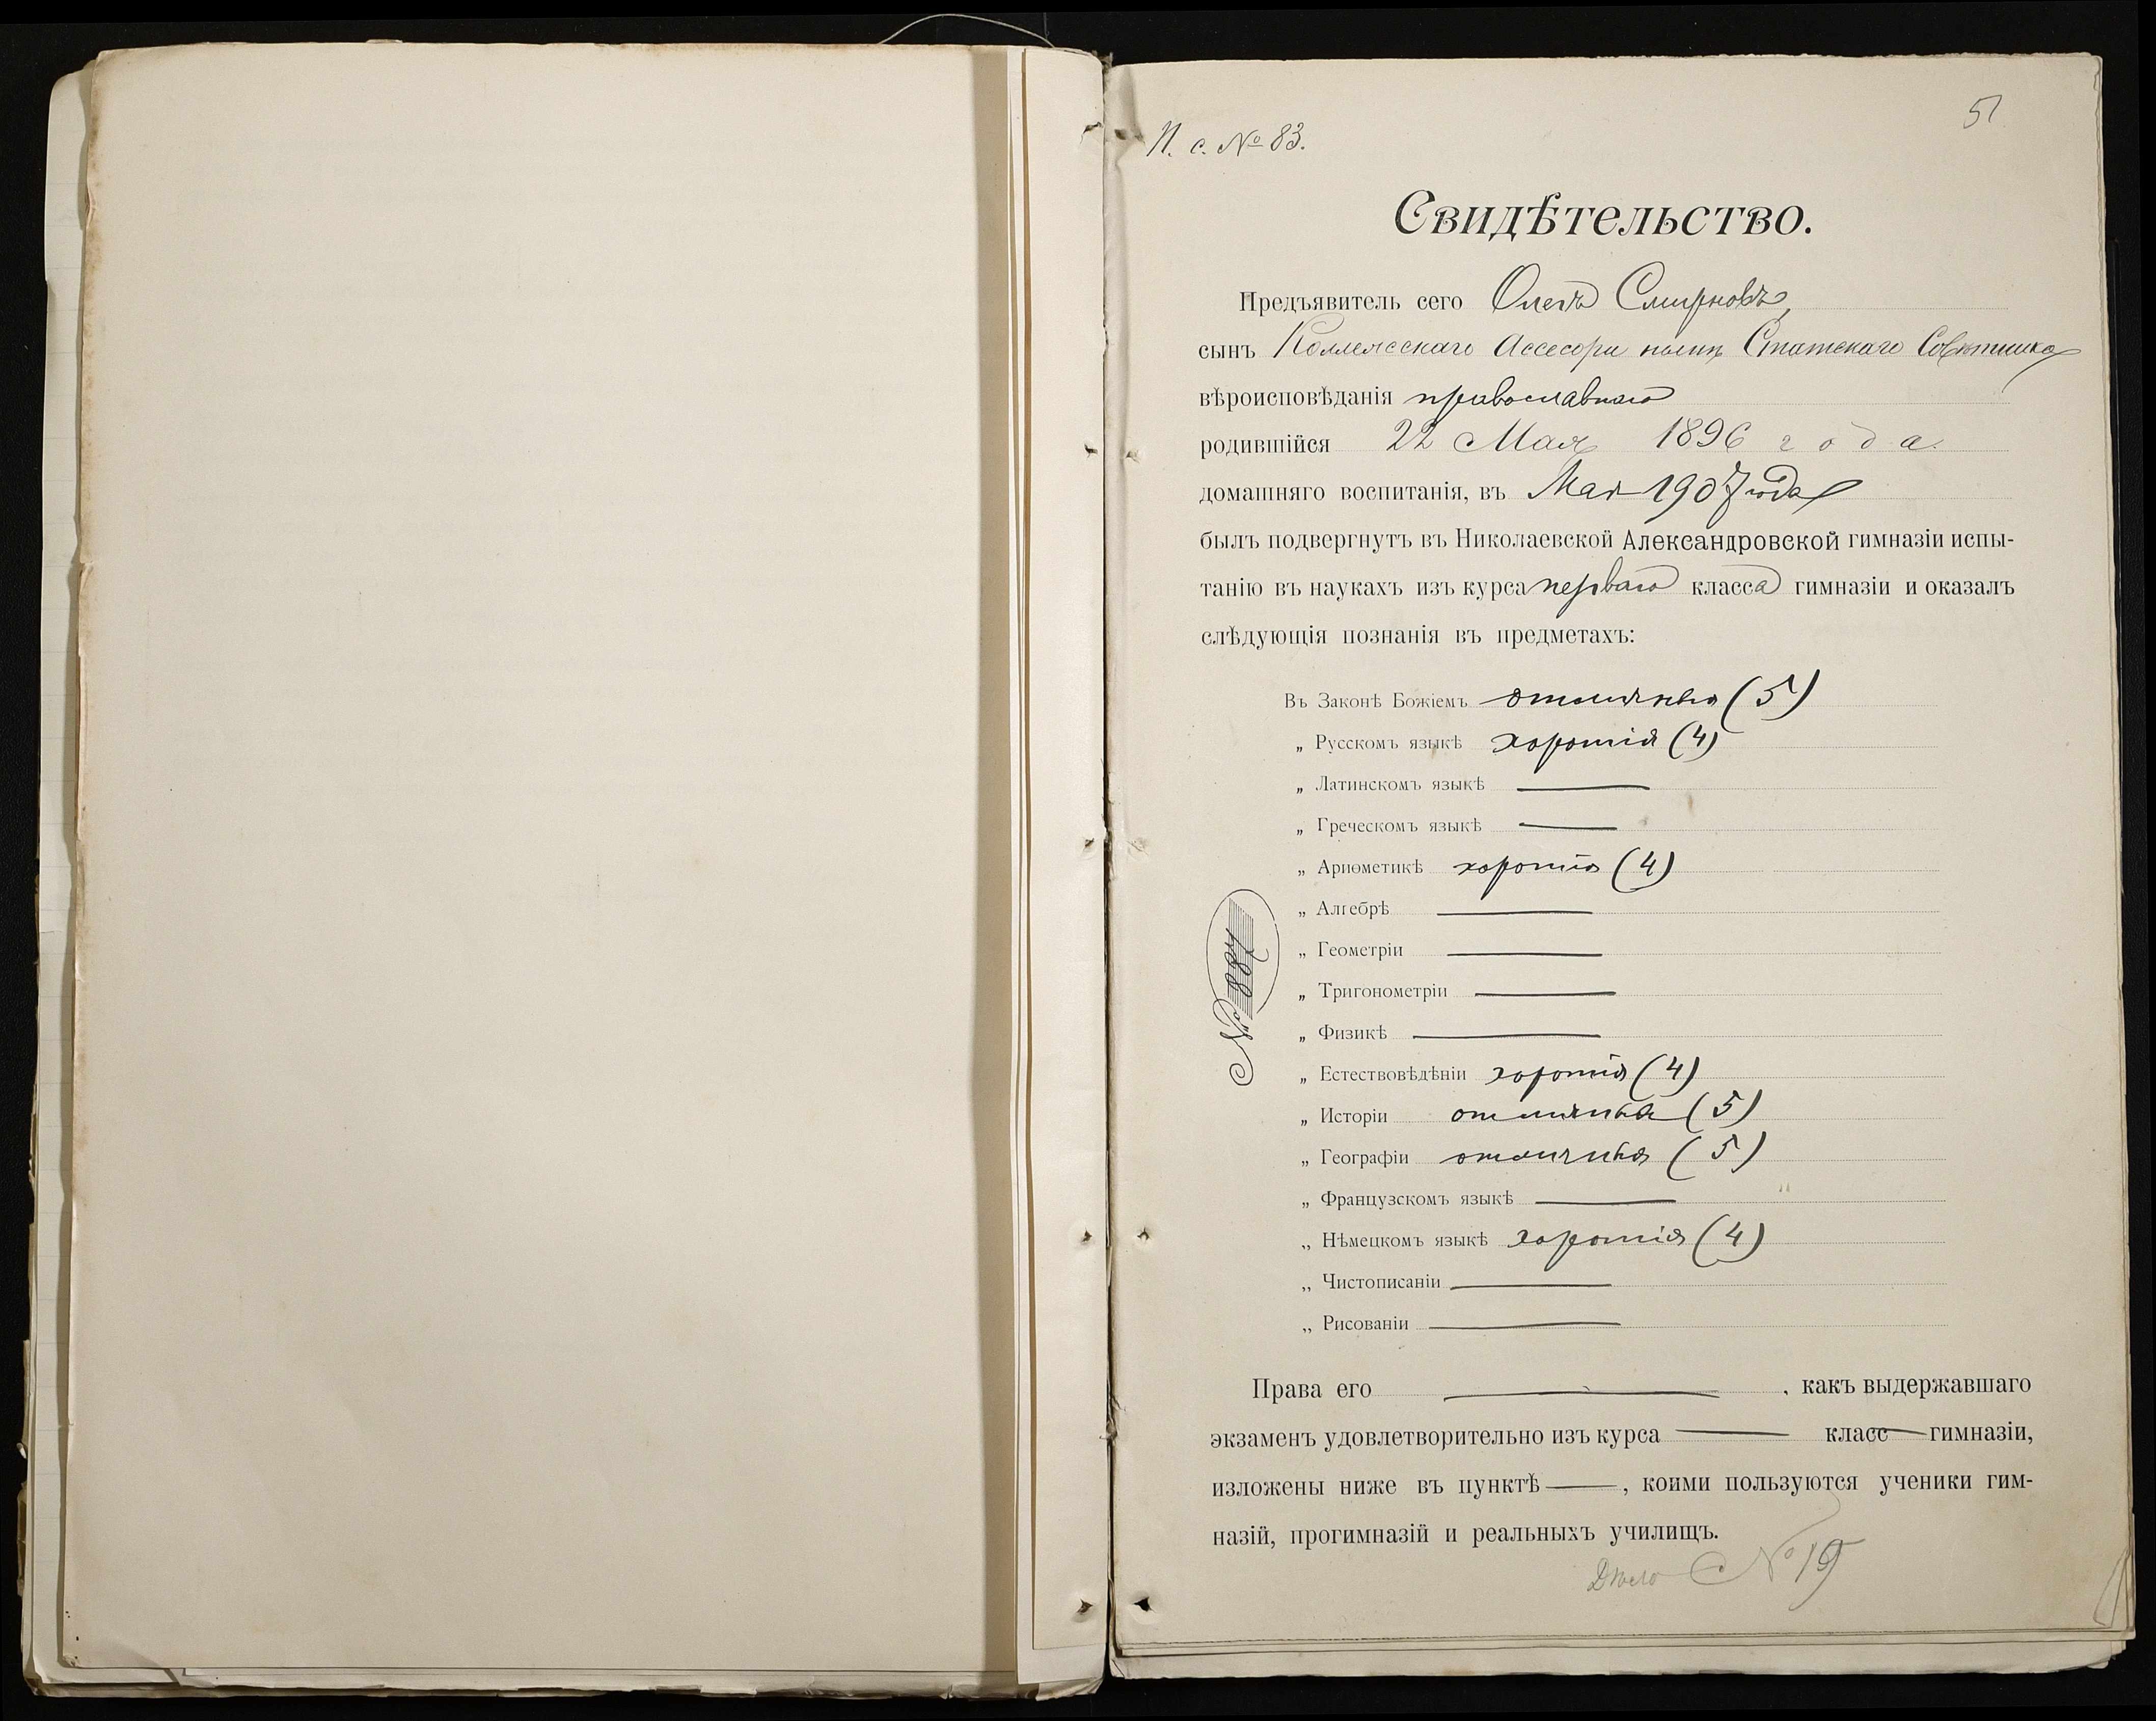 51
И. с. № 83.
Свидѣтельство.
Предъявитель сего Олегъ Смирновъ,
сынъ Коллежскаго Ассесора нынѣ Статскаго Совѣтника
вѣроисповѣданія православнаго
родившійся 22 Мая 1896 года.
домашняго воспитанія, въ Мае 1907 года
былъ подвергнутъ въ Николаевской Александровской гимназіи испы-
танію въ наукахъ изъ курса перваго класса гимназіи и оказалъ
слѣдующія познанія въ предметахъ:
Въ Законѣ Божіемъ отличныя (5)
„ Русскомъ языкѣ хорошія (4)
„ Латинскомъ языкѣ —
„ Греческомъ языкѣ —
„ Ариѳметикѣ хорошія (4)
„ Алгебрѣ —
„ Геометріи —
„ Тригонометріи —
„ Физикѣ —
„ Естествовѣдѣніи хорошія (4)
„ Исторіи отличныя (5)
„ Географіи отличныя (5)
„ Французскомъ языкѣ —
„ Нѣмецкомъ языкѣ хорошія (4)
„ Чистописаніи —
„ Рисованіи —
№ 887
Права его —, какъ выдержавшаго
экзаменъ удовлетворительно изъ курса — класс— гимназіи,
изложены ниже въ пунктѣ —, коими пользуются ученики гим-
назій, прогимназій и реальныхъ училищъ.
Дѣло № 19